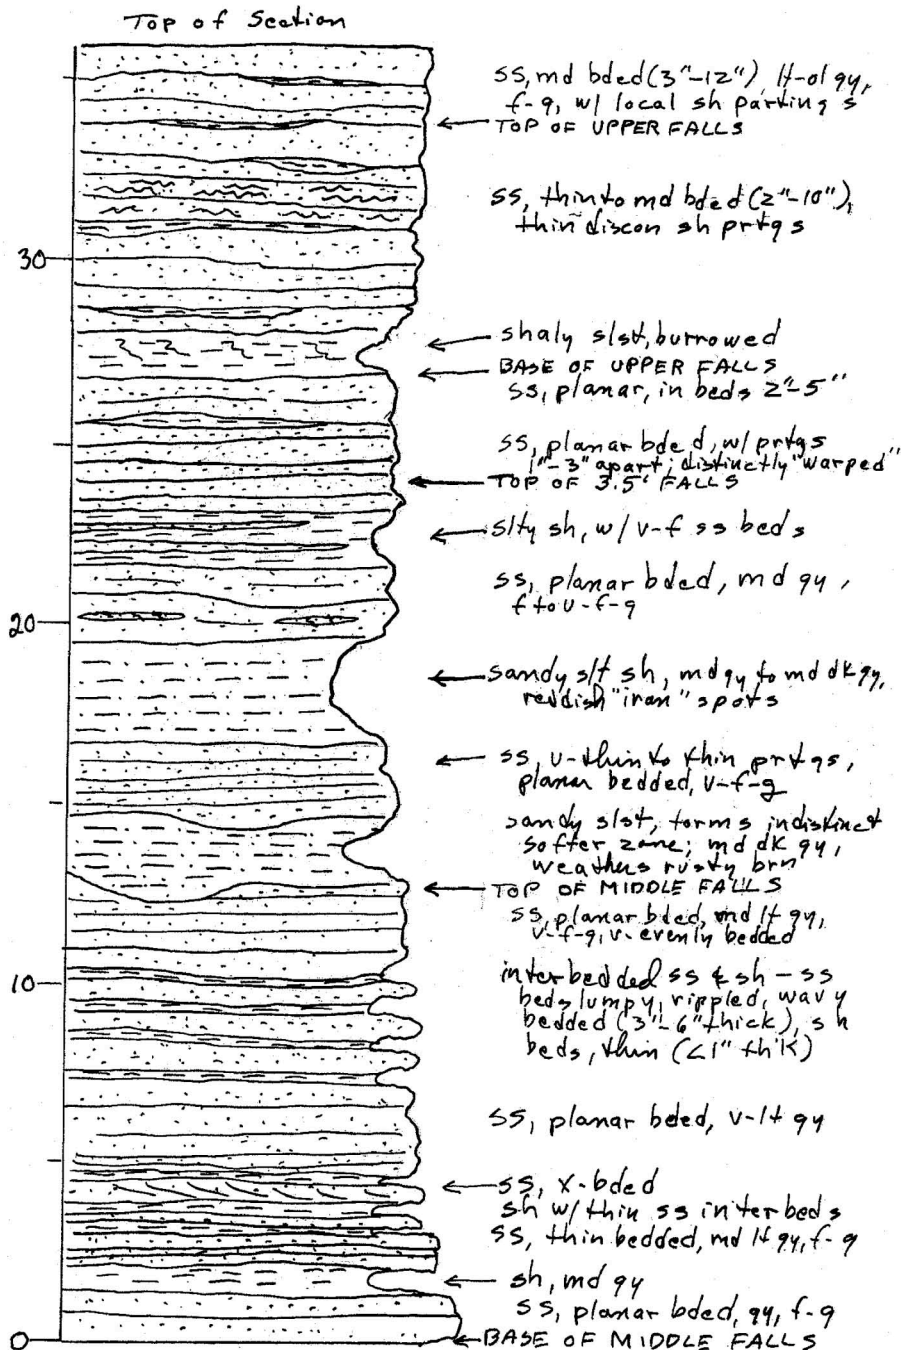 Top of Section
ss, md bded (3"-12") lt-ol gy,
f-g, w/ local sh partings
TOP OF UPPER FALLS
ss, thin to md bded (2"-10"),
thin discon sh prtgs
30
shaly slst, burrowed
BASE OF UPPER FALLS
ss, planar, in beds 2"-5"
ss, planar bded, w/ prtgs
1"-3" apart; distinctly "warped"
TOP OF 3.5' FALLS
slty sh, w/ v-f ss beds
ss, planar bded, md gy,
f to v-f-g
20
sandy slt sh, md gy to md dk gy,
reddish "iron" spots
ss, v-thin to thin prtgs,
planar bedded, v-f-g
sandy slst, forms indistinct
softer zone; md dk gy,
weathers rusty brn
TOP OF MIDDLE FALLS
ss, planar bded, md lt gy,
v-f-g, v-evenly bedded
10
interbedded ss & sh - ss
beds lumpy, rippled, wavy
bedded (3"-6" thick), sh
beds, thin (<1" thk)
ss, planar bded, v-lt gy
ss, x-bded
sh w/ thin ss interbeds
ss, thin bedded, md lt gy, f-g
sh, md gy
ss, planar bded, gy, f-g
0
BASE OF MIDDLE FALLS